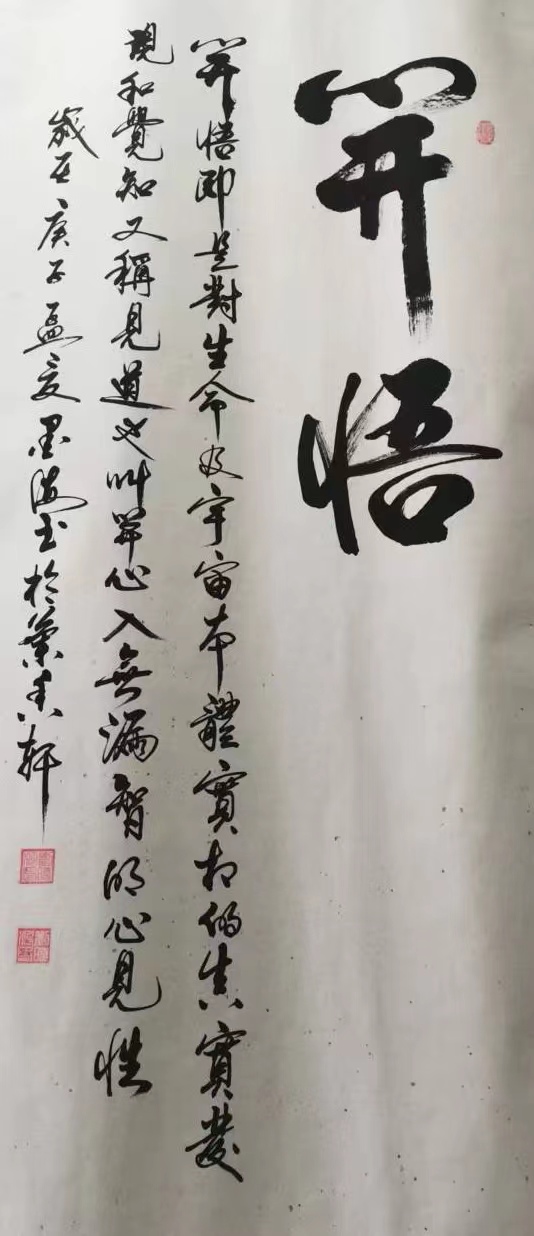 開悟
開悟即是對生命及宇宙本體實相的真實發
現和覺知又稱見道也叫開心入無漏智明心見性
歲在庚子孟夏墨海書於蘭香軒